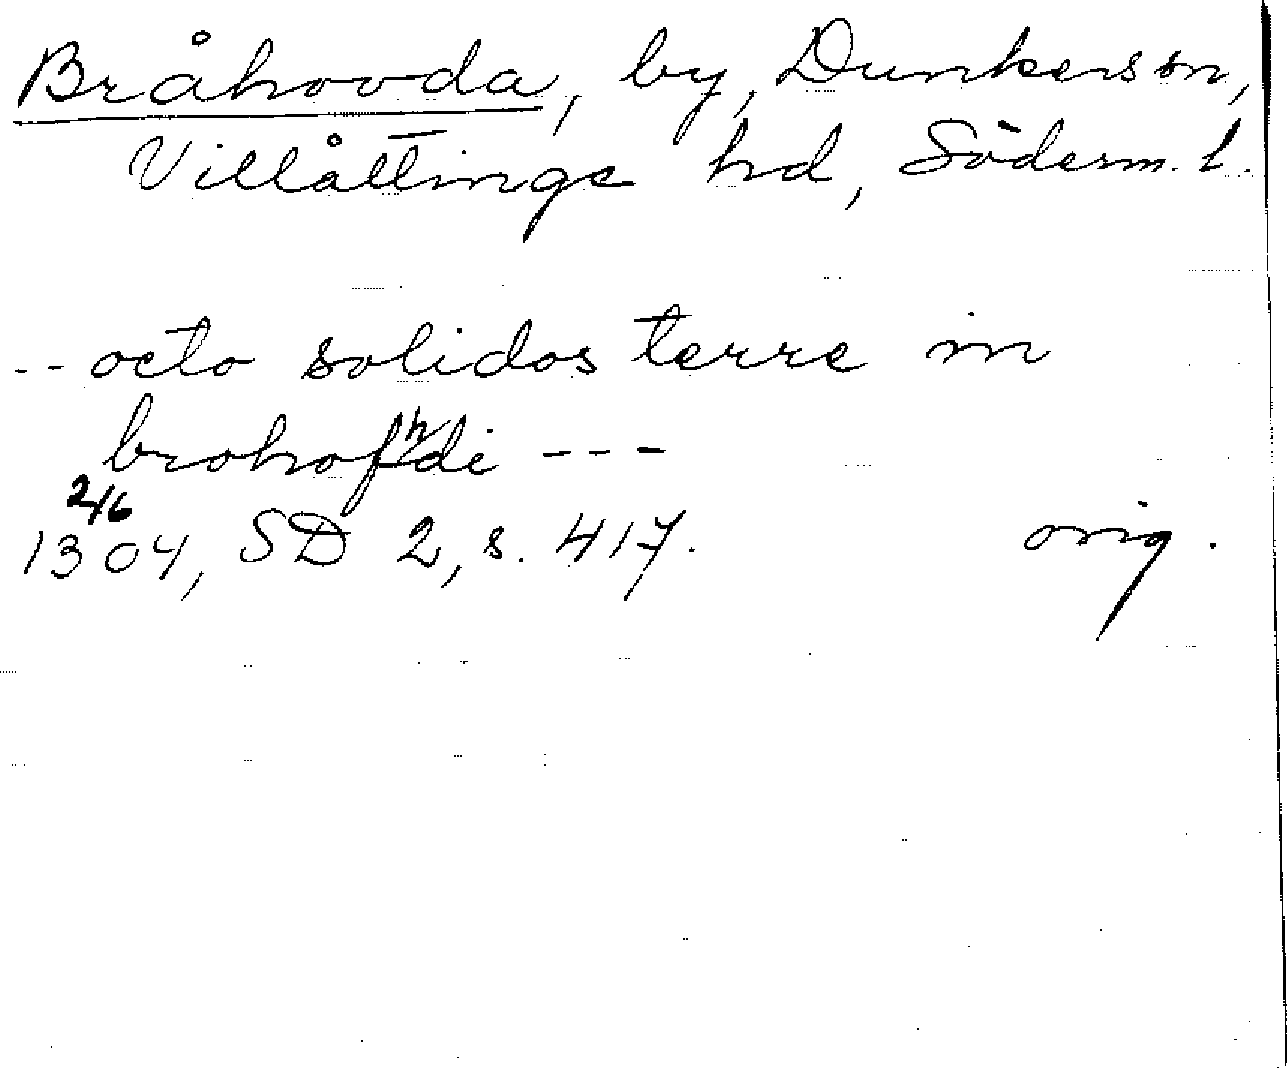 Bråhovda, by, Dunkers sn,
Villåttinge hd, Söderm. l.
-- octo solidos terre in
brohofhdi ---
2/6
1304, SD 2, s. 417. orig.